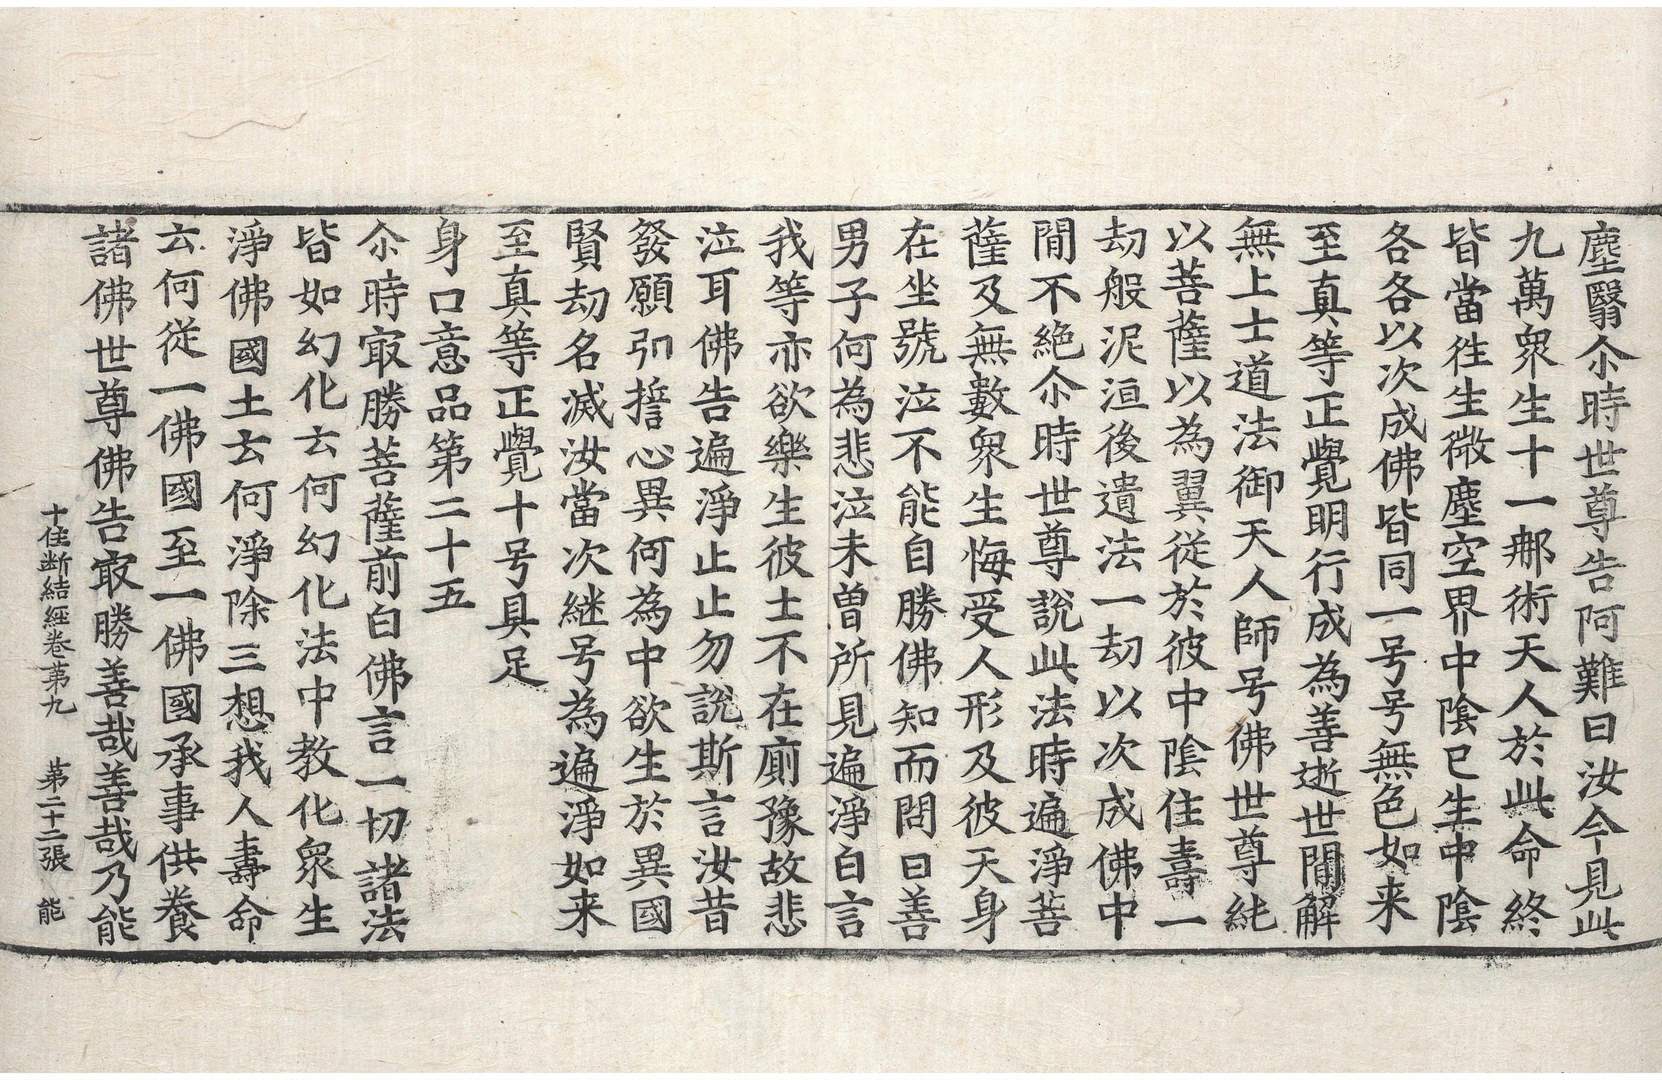 塵翳尒時世尊告阿難曰汝今見此
九萬衆生十一那術天人於此命終
皆當往生微塵空界中陰已生中陰
各各以次成佛皆同一号号無色如来
至真等正覺明行成為善逝世間解
無上士道法御天人師号佛世尊純
以菩薩以為翼從於彼中陰住壽一
劫般泥洹後遺法一劫以次成佛中
間不絶尒時世尊說此法時遍淨菩
薩及無數衆生悔受人形及彼天身
在坐號泣不能自勝佛知而問曰善
男子何為悲泣未曽所見遍淨白言
我等亦欲樂生彼士不在廁豫故悲
泣耳佛告遍淨止止勿說斯言汝昔
發願引誓心異何為中欲生於異國
賢劫名滅汝當次継号為遍淨如来
至真等正覺十号具足
身口意品第二十五
尒時㝡勝菩薩前白佛言一切諸法
皆如幻化云何幻化法中教化衆生
淨佛國土云何淨除三想我人壽命
云何從一佛國至一佛國承事供養
諸佛世尊佛告㝡勝善哉善哉乃能
十住断結經卷苐九 苐二十二張 能